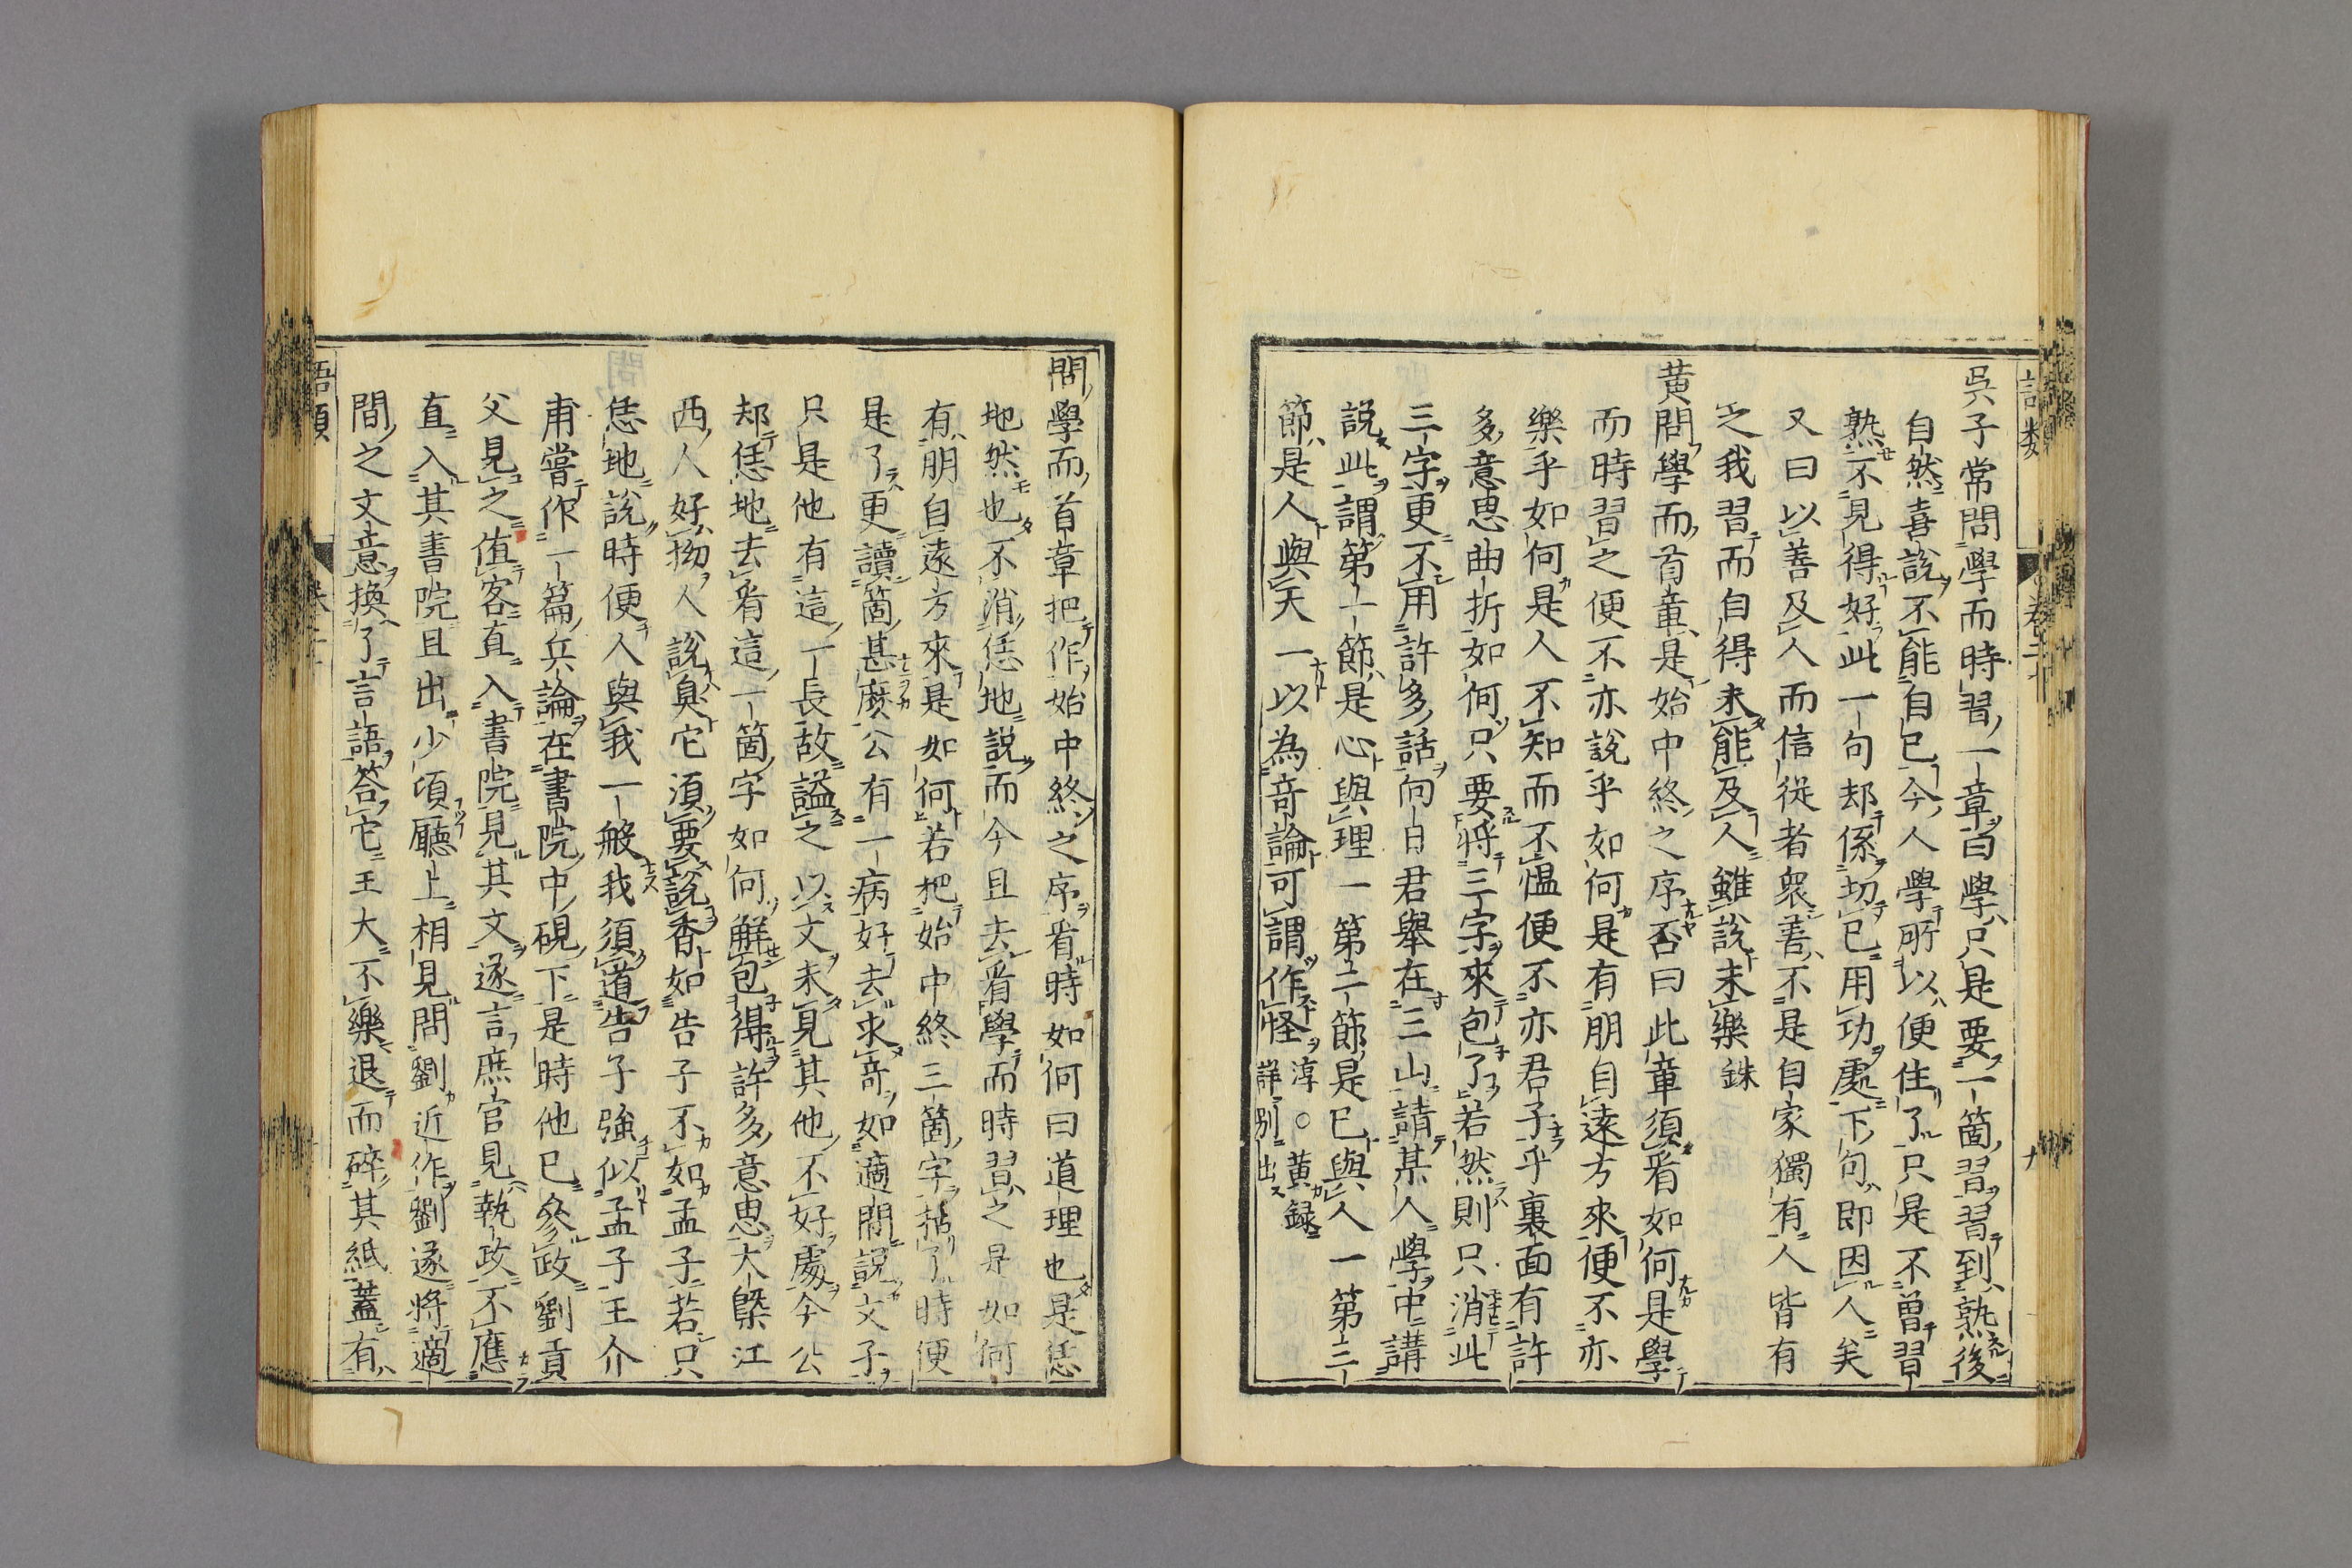 吳子常問學而時習一章曰學只是要一箇習習到熟後
自然喜說不能自已今人學所以便住了只是不曾習
熟不見得好此一句却係切已用功處下句即因人矣
又曰以善及人而信從者衆善不是自家獨有人皆有
之我習而自得未能及人雖說未樂銖
黄問學而首章是始中終之序否曰此章須看如何是學
而時習之便不亦說乎如何是有朋自遠方來便不亦
樂乎如何是人不知而不愠便不亦君子乎裏面有許
多意思曲折如何只要將三字來包了若然則只消此
三字更不用許多話向日君舉在三山請某人學中講
說此謂第一節是心與理一第二節是已與人一第三
節是人與天一以為竒論可謂作怪淳○黄録詳別出
問學而首章把作始中終之序看時如何曰道理也是恁
地然也不消恁地說而今且去看學而時習之是如何
有朋自遠方來是如何若把始中終三箇字括了時便
是了更讀箇甚麽公有一病好去求竒如適間說文子
只是他有這一長故謚之以文未見其他不好處今公
却恁地去看這一箇字如何解包得許多意思大槩江
西人好拗人說臭它須要說香如告子不如孟子若只
恁地說時便人與我一般我須道告子強似孟子王介
甫嘗作一篇兵論在書院中硯下是時他已參政劉貢
父見之值客直入書院見其文遂言庶官見執政不應
直入其書院且出少頃廳上相見問劉近作劉遂將適
間之文意換了言語答它王大不樂退而碎其紙蓋有